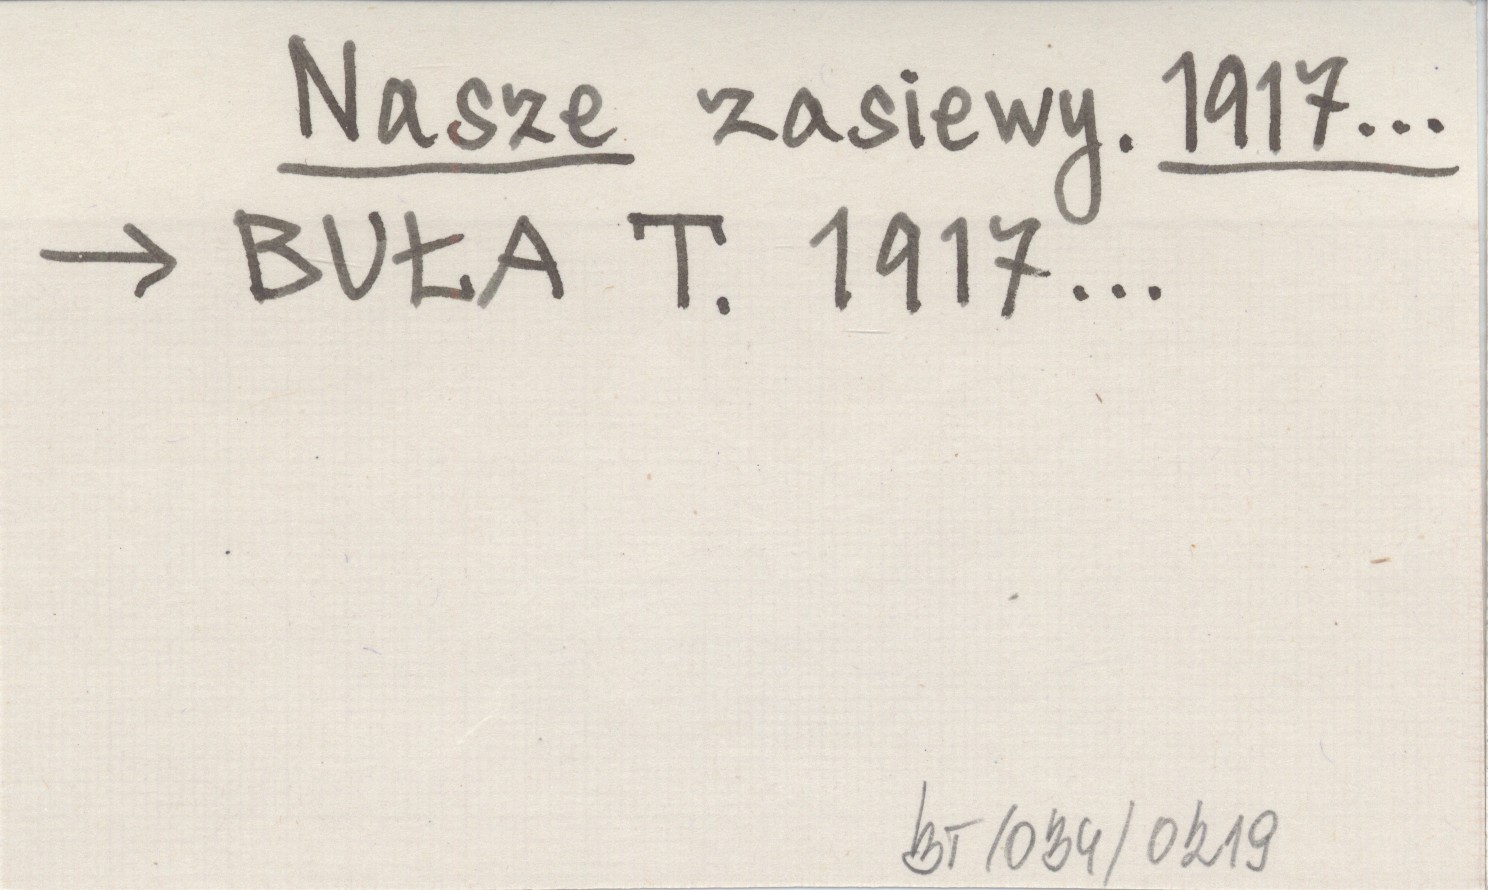 Nasze zasiewy. 1917...
→ BUŁA T. 1917...
BT/034/0219